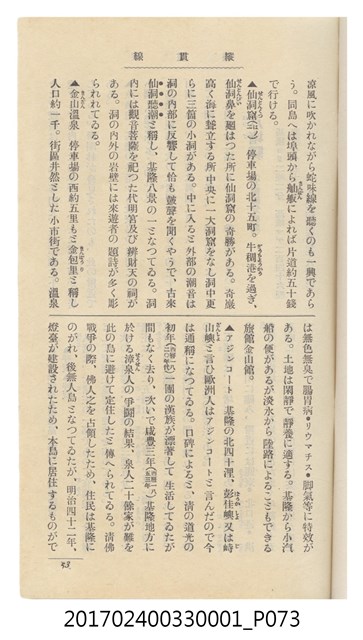 縱貫線
凉風に吹かれながら蛇味線を聽くのも一興であら
う。同島へは埠頭から舢舨によれば片道約五十錢
で行ける。
▲仙洞窟 停車場の北十五町。牛稠港を過ぎ、
仙洞鼻を廻はつた所に仙洞窟の奇勝がある。奇巖
高く海に聳立する所中央に一大洞窟をなし洞中更
らに三箇の小洞がある。中に入ると外部の潮音は
洞の内部に反響して恰も鼓聲を聞くやうで、古來
仙洞聽潮と稱し、基隆八景の一となつてゐる。洞
内には觀音菩薩を祀つた代明宮及び辨財天の祠が
ある。洞の内外の岩壁には來遊者の題詩が多く彫
られれてゐる。
▲金山溫泉 停車場の西約五里もと金包里と稱し
人口約一千。街區井然とした小市街である。溫泉
は無色無臭で胃腸病・リウマチス・脚氣等に特效が
ある。土地は閑靜で靜養に適する。基隆から小汽
船の便があるが淡水から陸路によることもできる
旅館金山館。
▲アジンコート 基隆の北四十浬、彭佳嶼又は峙
山嶼と言ひ歐洲人はアジンコートと言んだので今
は通稱になつてゐる。口碑によると、淸の道光の
初年一團の漢族が漂著して生活してゐたが
間もなく去り、次いで咸豊三年基隆地方に
於ける漳泉人の爭鬪の結果、泉人二十餘家が難を
此の島に避けて定住したと傳へられてゐる。淸佛
戰爭の際、佛人之を占領したため、住民は基隆に
のがれ、後無人島となつてゐたが、明治四十二年、
燈臺が建設されたため、本島に居住するものがで
201702400330001_P073